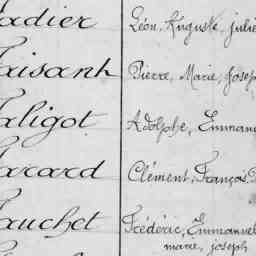 adier Léon, Auguste, julie
aisant Pierre, Marie, Josep
aligot Adolphe, Emmanu
arard Clément, François,
auchet Frédéric, Emmanuel
marie, joseph